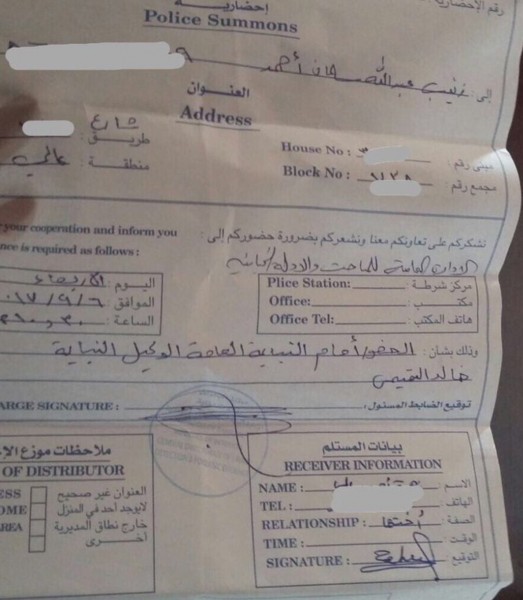 رقم الإحضارية
إحضارية
Police Summons
إلى: عبدالله أحمد
العنوان
Address
شارع
طريق:
House No :
مبنى رقم :
منطقة : عالي
Block No :
مجمع رقم
نشكركم على تعاونكم معنا ونشعركم بضرورة حضوركم إلى :
your cooperation and inform you
is required as follows :
العامة للمباحث والأدلة
اليوم : الأربعاء
Plice Station:
مركز شرطة :
الموافق : ٠١٧/٩/٦
Office:
مكتب :
الساعة :
Office Tel:
هاتف المكتب :
وذلك بشأن : الحضور أمام النيابة العامة الوكيل النيابة
خالد التميمي
ARGE SIGNATURE :
توقيع الضابط المسئول :
ملاحظات موزع
OF DISTRIBUTOR
ESS
العنوان غير صحيح
OME
لايوجد احد في المنزل
AREA
خارج نطاق المديرية
أخرى
بيانات المستلم
RECEIVER INFORMATION
NAME :
الاسم :
TEL :
الهاتف :
RELATIONSHIP : أختها
الصفة :
TIME :
الوقت :
SIGNATURE :
التوقيع :